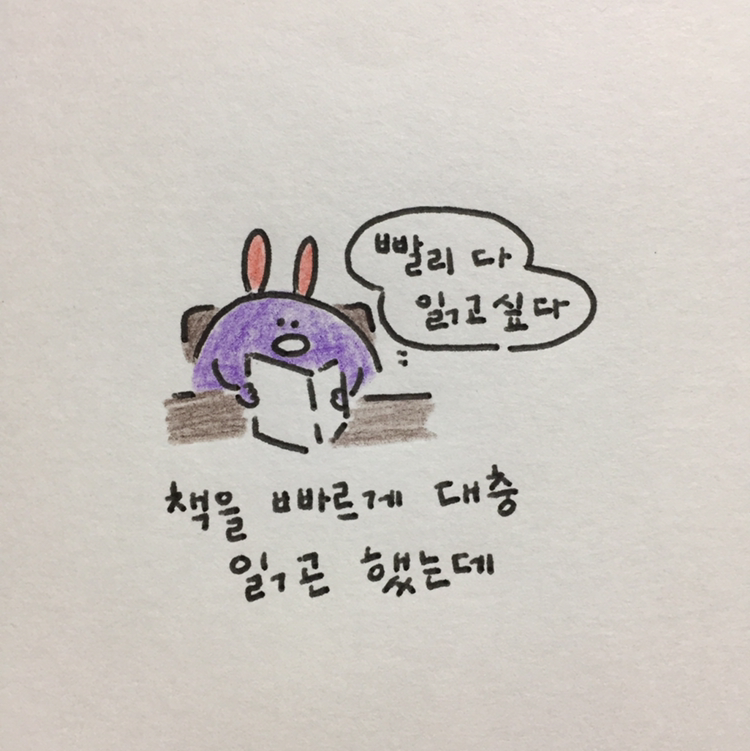 빨리 다
읽고싶다
책을 빠르게 대충
읽곤 했는데